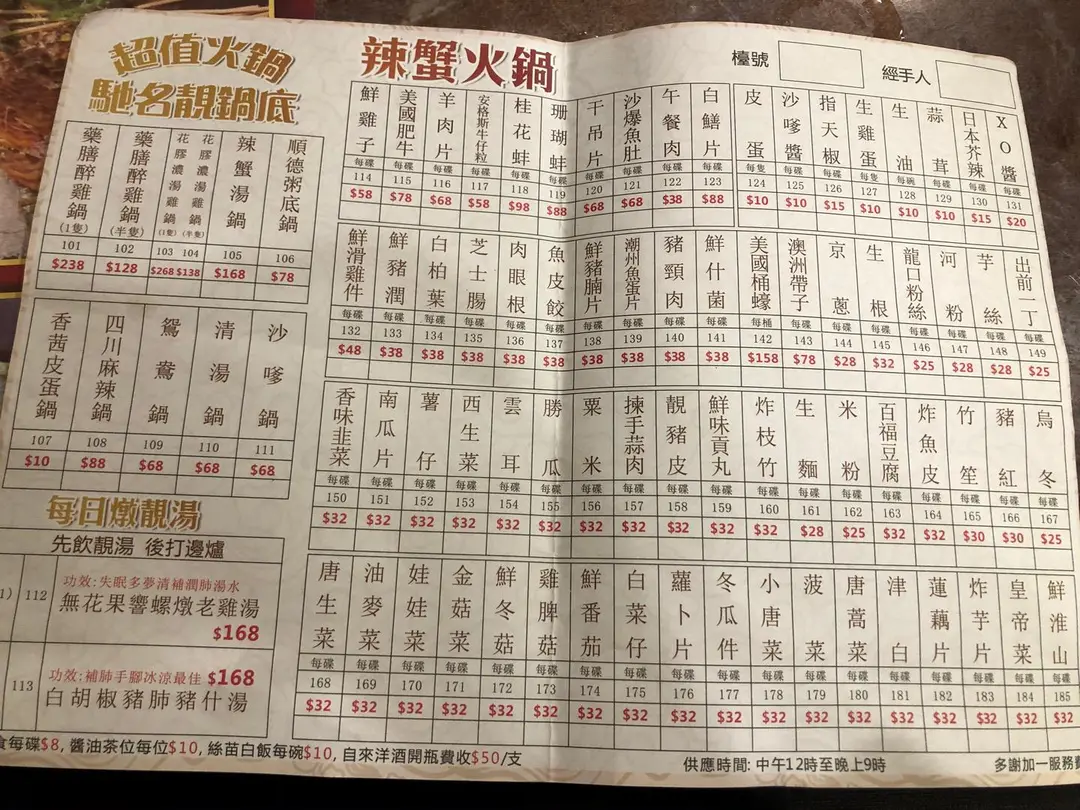 超值火鍋
馳名靚鍋底
藥膳醉雞鍋(1隻) 101 $238
藥膳醉雞鍋(半隻) 102 $128
花膠濃湯雞鍋(1隻) 103 $268
花膠濃湯雞鍋(半隻) 104 $138
辣蟹湯鍋 105 $168
順德粥底鍋 106 $78
香茜皮蛋鍋 107 $10
四川麻辣鍋 108 $88
鴛鴦鍋 109 $68
清湯鍋 110 $68
沙嗲鍋 111 $68
每日燉靚湯
先飲靚湯 後打邊爐
1) 112 功效:失眠多夢清補潤肺湯水
無花果響螺燉老雞湯
$168
113 功效:補肺手腳冰涼最佳 $168
白胡椒豬肺豬什湯
辣蟹火鍋
檯號
經手人
鮮雞子 每碟 114 $58
美國肥牛 每碟 115 $78
羊肉片 每碟 116 $68
安格斯牛仔粒 每碟 117 $58
桂花蚌 每碟 118 $98
珊瑚蚌 每碟 119 $88
干吊片 每碟 120 $68
沙爆魚肚 每碟 121 $68
午餐肉 每碟 122 $38
白鱔片 每碟 123 $88
皮蛋 每隻 124 $10
沙嗲醬 每碟 125 $10
指天椒 每碟 126 $15
生雞蛋 每隻 127 $10
生油 每碗 128 $10
蒜茸 每碟 129 $10
日本芥辣 每碟 130 $15
XO醬 每碟 131 $20
鮮滑雞件 每碟 132 $48
鮮豬潤 每碟 133 $38
白柏葉 每碟 134 $38
芝士腸 每碟 135 $38
肉眼根 每碟 136 $38
魚皮餃 每碟 137 $38
鮮豬腩片 每碟 138 $38
潮州魚蛋片 每碟 139 $38
豬頸肉 每碟 140 $38
鮮什菌 每碟 141 $38
美國桶蠔 每桶 142 $158
澳洲帶子 每碟 143 $78
京蔥 每碟 144 $28
生根 每碟 145 $32
龍口粉絲 每碟 146 $25
河粉 每碟 147 $28
芋絲 每碟 148 $28
出前一丁 每碟 149 $25
香味韭菜 每碟 150 $32
南瓜片 每碟 151 $32
薯仔 每碟 152 $32
西生菜 每碟 153 $32
雲耳 每碟 154 $32
勝瓜 每碟 155 $32
粟米 每碟 156 $32
揀手蒜肉 每碟 157 $32
靚豬皮 每碟 158 $32
鮮味貢丸 每碟 159 $32
炸枝竹 每碟 160 $32
生麵 每碟 161 $28
米粉 每碟 162 $25
百福豆腐 每碟 163 $32
炸魚皮 每碟 164 $32
竹笙 每碟 165 $30
豬紅 每碟 166 $30
烏冬 每碟 167 $25
唐生菜 每碟 168 $32
油麥菜 每碟 169 $32
娃娃菜 每碟 170 $32
金菇菜 每碟 171 $32
鮮冬菇 每碟 172 $32
雞脾菇 每碟 173 $32
鮮番茄 每碟 174 $32
白菜仔 每碟 175 $32
蘿卜片 每碟 176 $32
冬瓜件 每碟 177 $32
小唐菜 每碟 178 $32
菠菜 每碟 179 $32
唐蒿菜 每碟 180 $32
津白 每碟 181 $32
蓮藕片 每碟 182 $32
炸芋片 每碟 183 $32
皇帝菜 每碟 184 $32
鮮淮山 每碟 185 $32
食每碟$8, 醬油茶位每位$10, 絲苗白飯每碗$10, 自來洋酒開瓶費收$50/支
供應時間: 中午12時至晚上9時
多謝加一服務費